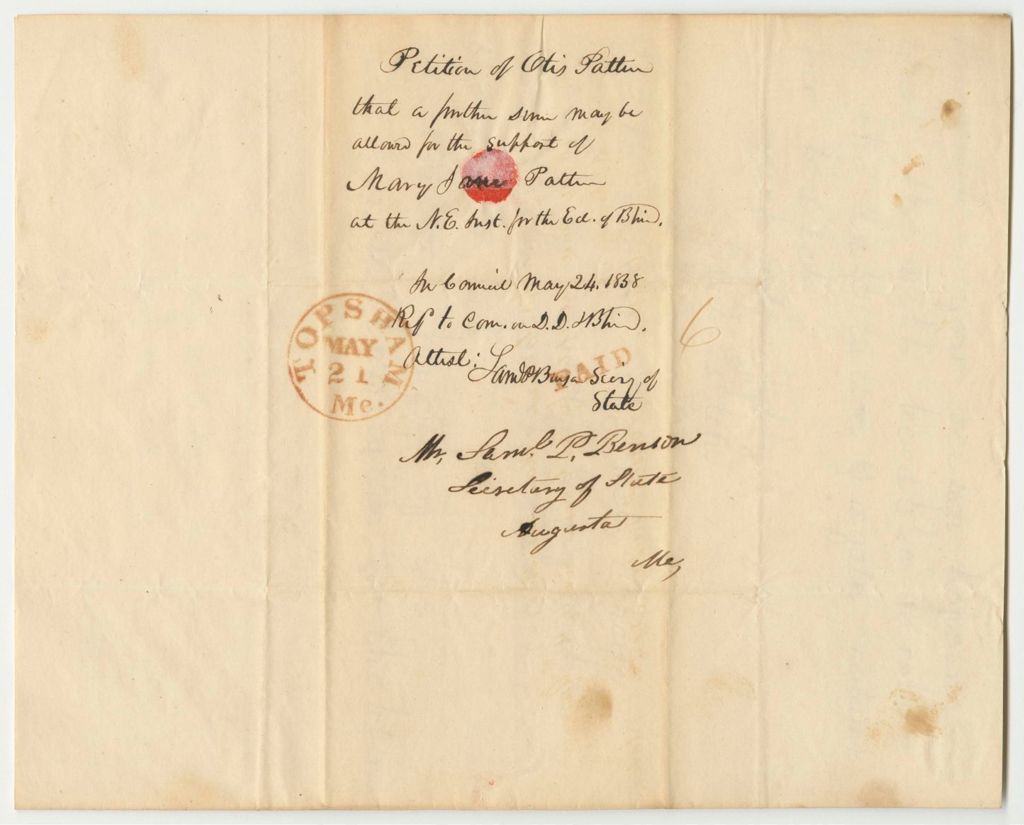 Petition of Otis Patten
that a further sum may be
allowed for the support of
Mary Jane Patten
at the N.E. Inst. for the Ed. of Blind.
In Council May 24. 1838
Ref'd to Com. on D.D. & Blind.
Attest:
Sam'l P Benson Secy of
State
TOPSHAM
MAY
21
Me.
PAID
6
Mr. Saml. P. Benson
Secretary of State
Augusta
Me,